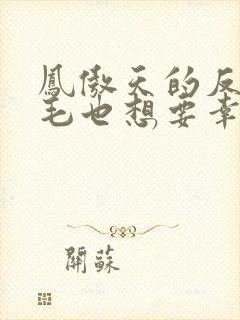 鳳傲天的反
毛也想要幸
開蘇